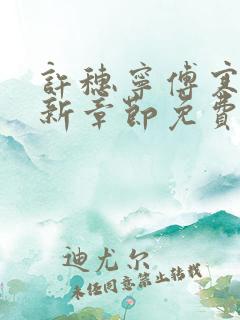 許穗寧傅寒
新章節免費
迪尤尔
未经同意禁止转载